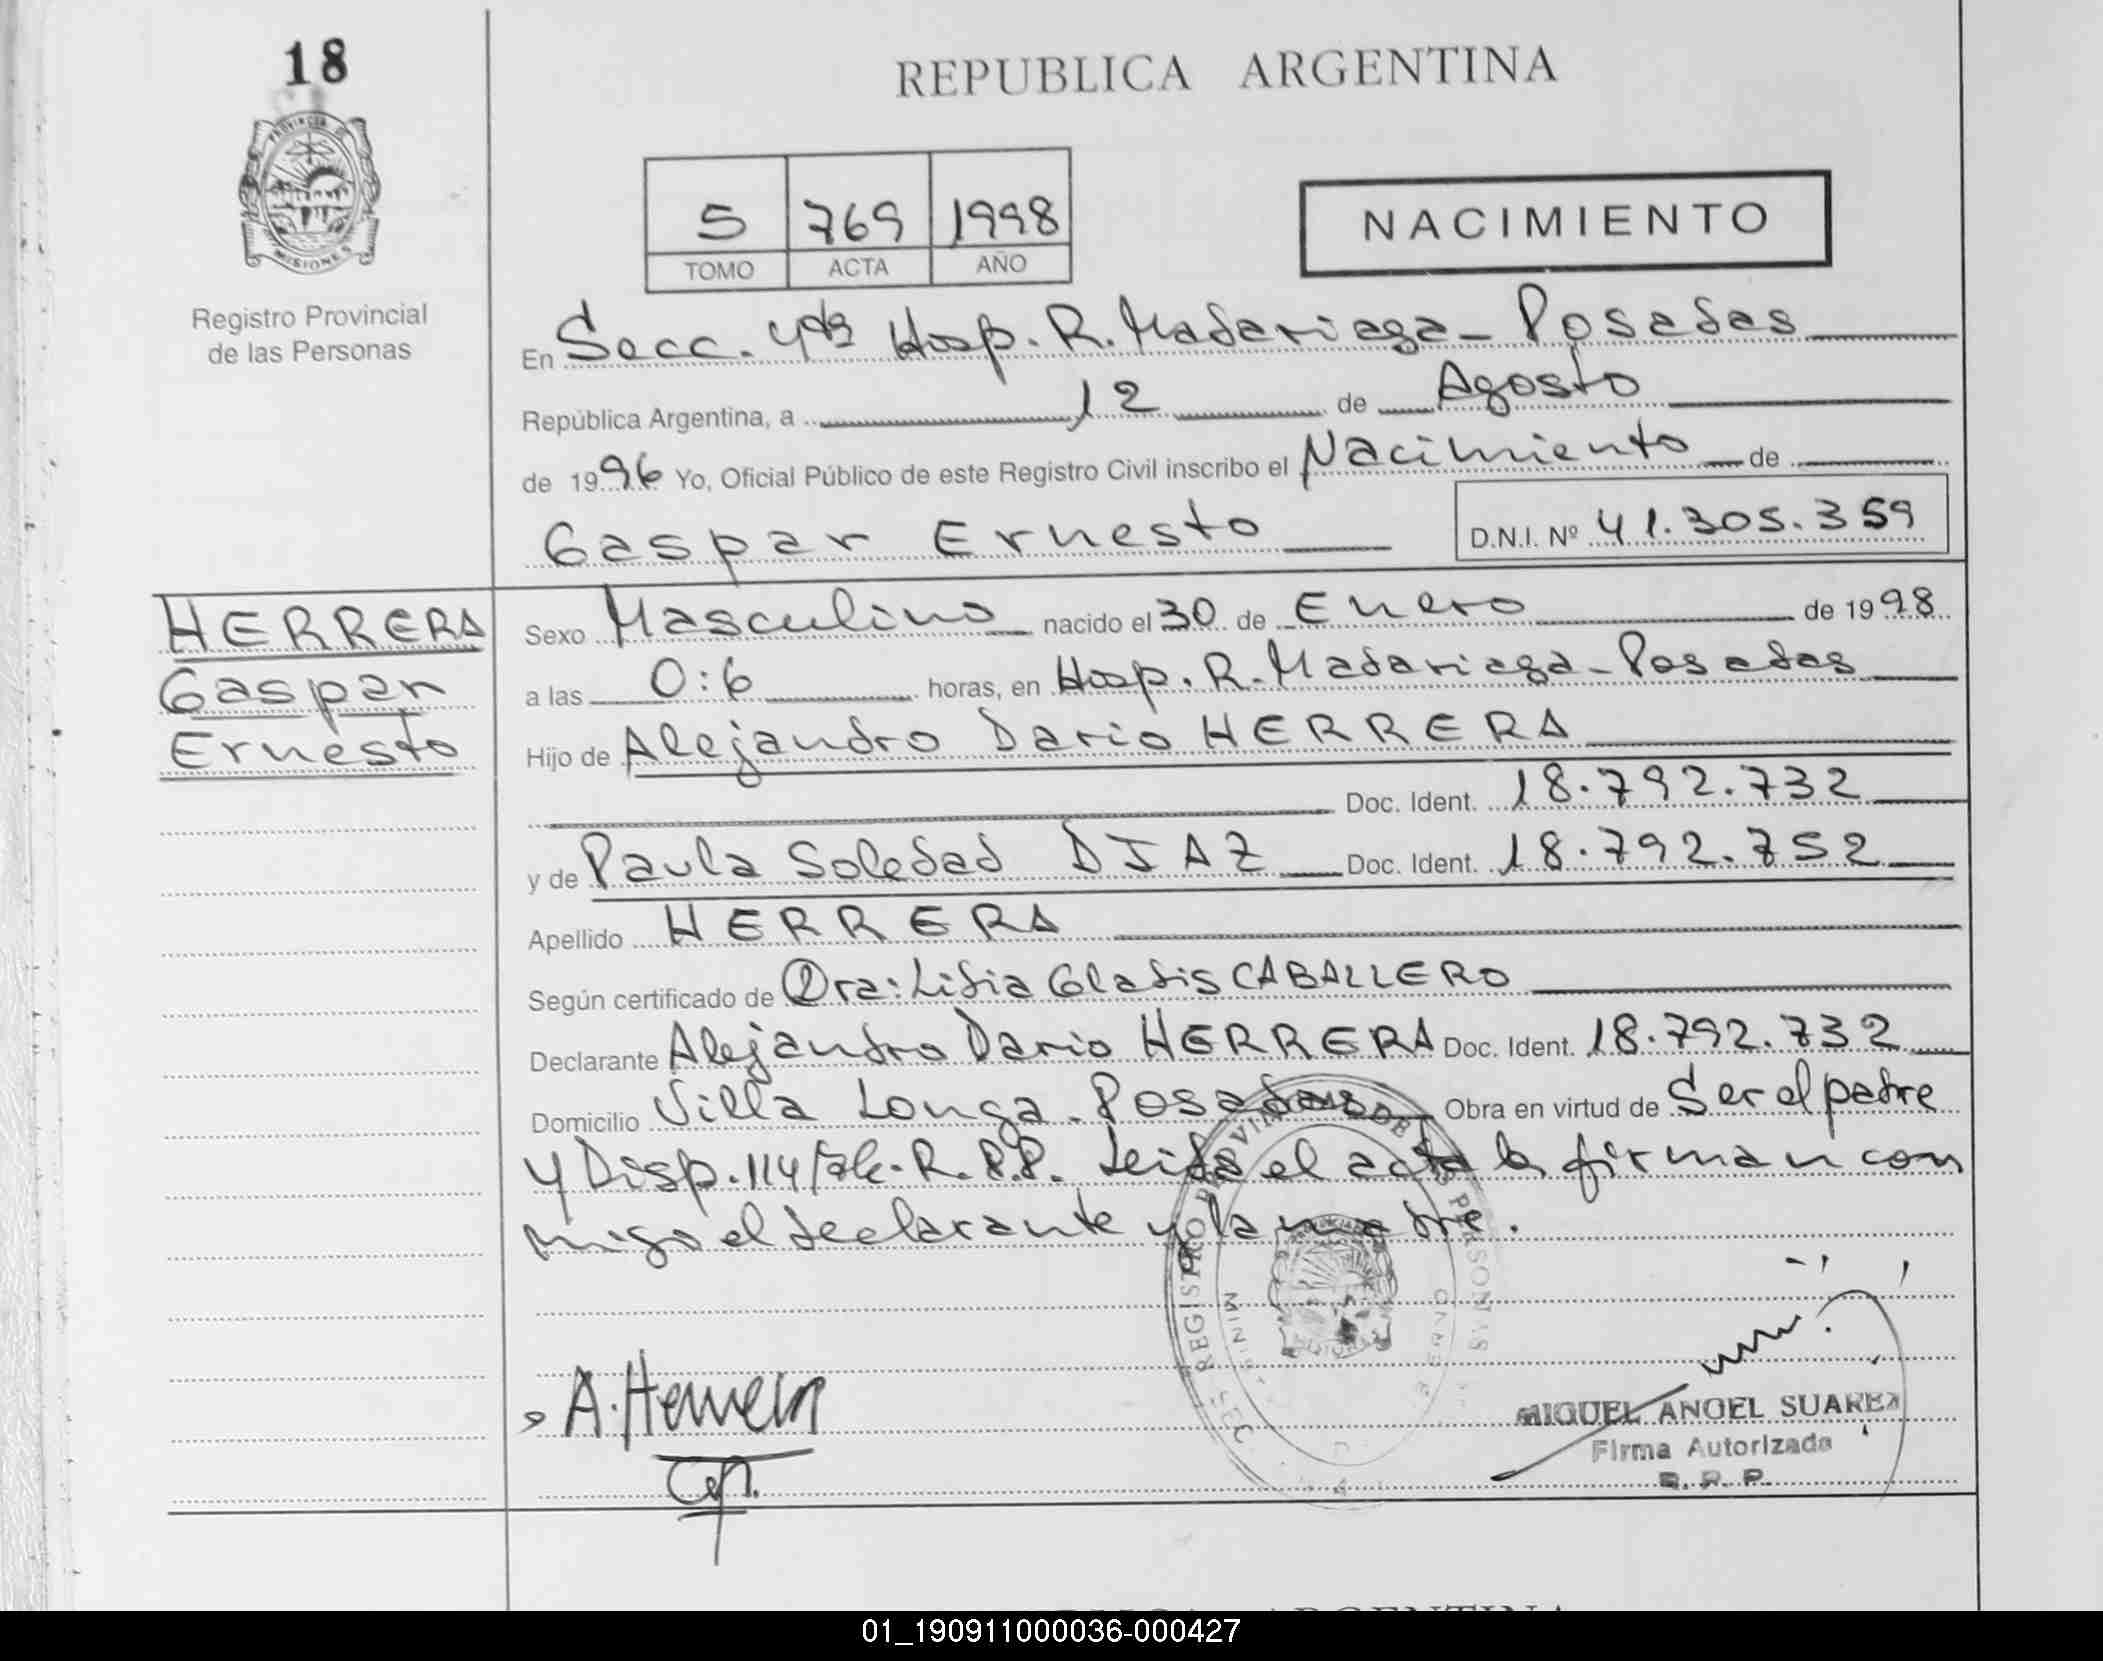 18
REPUBLICA ARGENTINA
PROVINCIA DE MISIONES
5 769 1998
TOMO ACTA AÑO
NACIMIENTO
Registro Provincial
de las Personas
En Secc. 4ta Hosp. R. Madariaga - Posadas
República Argentina, a 12 de Agosto
de 1996 Yo, Oficial Público de este Registro Civil inscribo el Nacimiento de
Gaspar Ernesto D.N.I. Nº 41.305.359
HERRERA
Gaspar
Ernesto
Sexo Masculino nacido el 30 de Enero de 1998
a las 0:6 horas, en Hosp. R. Madariaga - Posadas
Hijo de Alejandro Dario HERRERA
Doc. Ident. 18.792.732
y de Paula Soledad DIAZ Doc. Ident. 18.792.752
Apellido HERRERA
Según certificado de Dra: Lidia Gladis CABALLERO
Declarante Alejandro Dario HERRERA Doc. Ident. 18.792.732
Domicilio Villa Longa - Posadas Obra en virtud de Ser el padre
y Disp. 114/ R.P.P. Leida el acta la firman con
migo el declarante y la madre.
REGISTRO PROVINCIAL DE LAS PERSONAS
A. Herrera
MIGUEL ANGEL SUAREZ
Firma Autorizada
R. P. P.
01_190911000036-000427